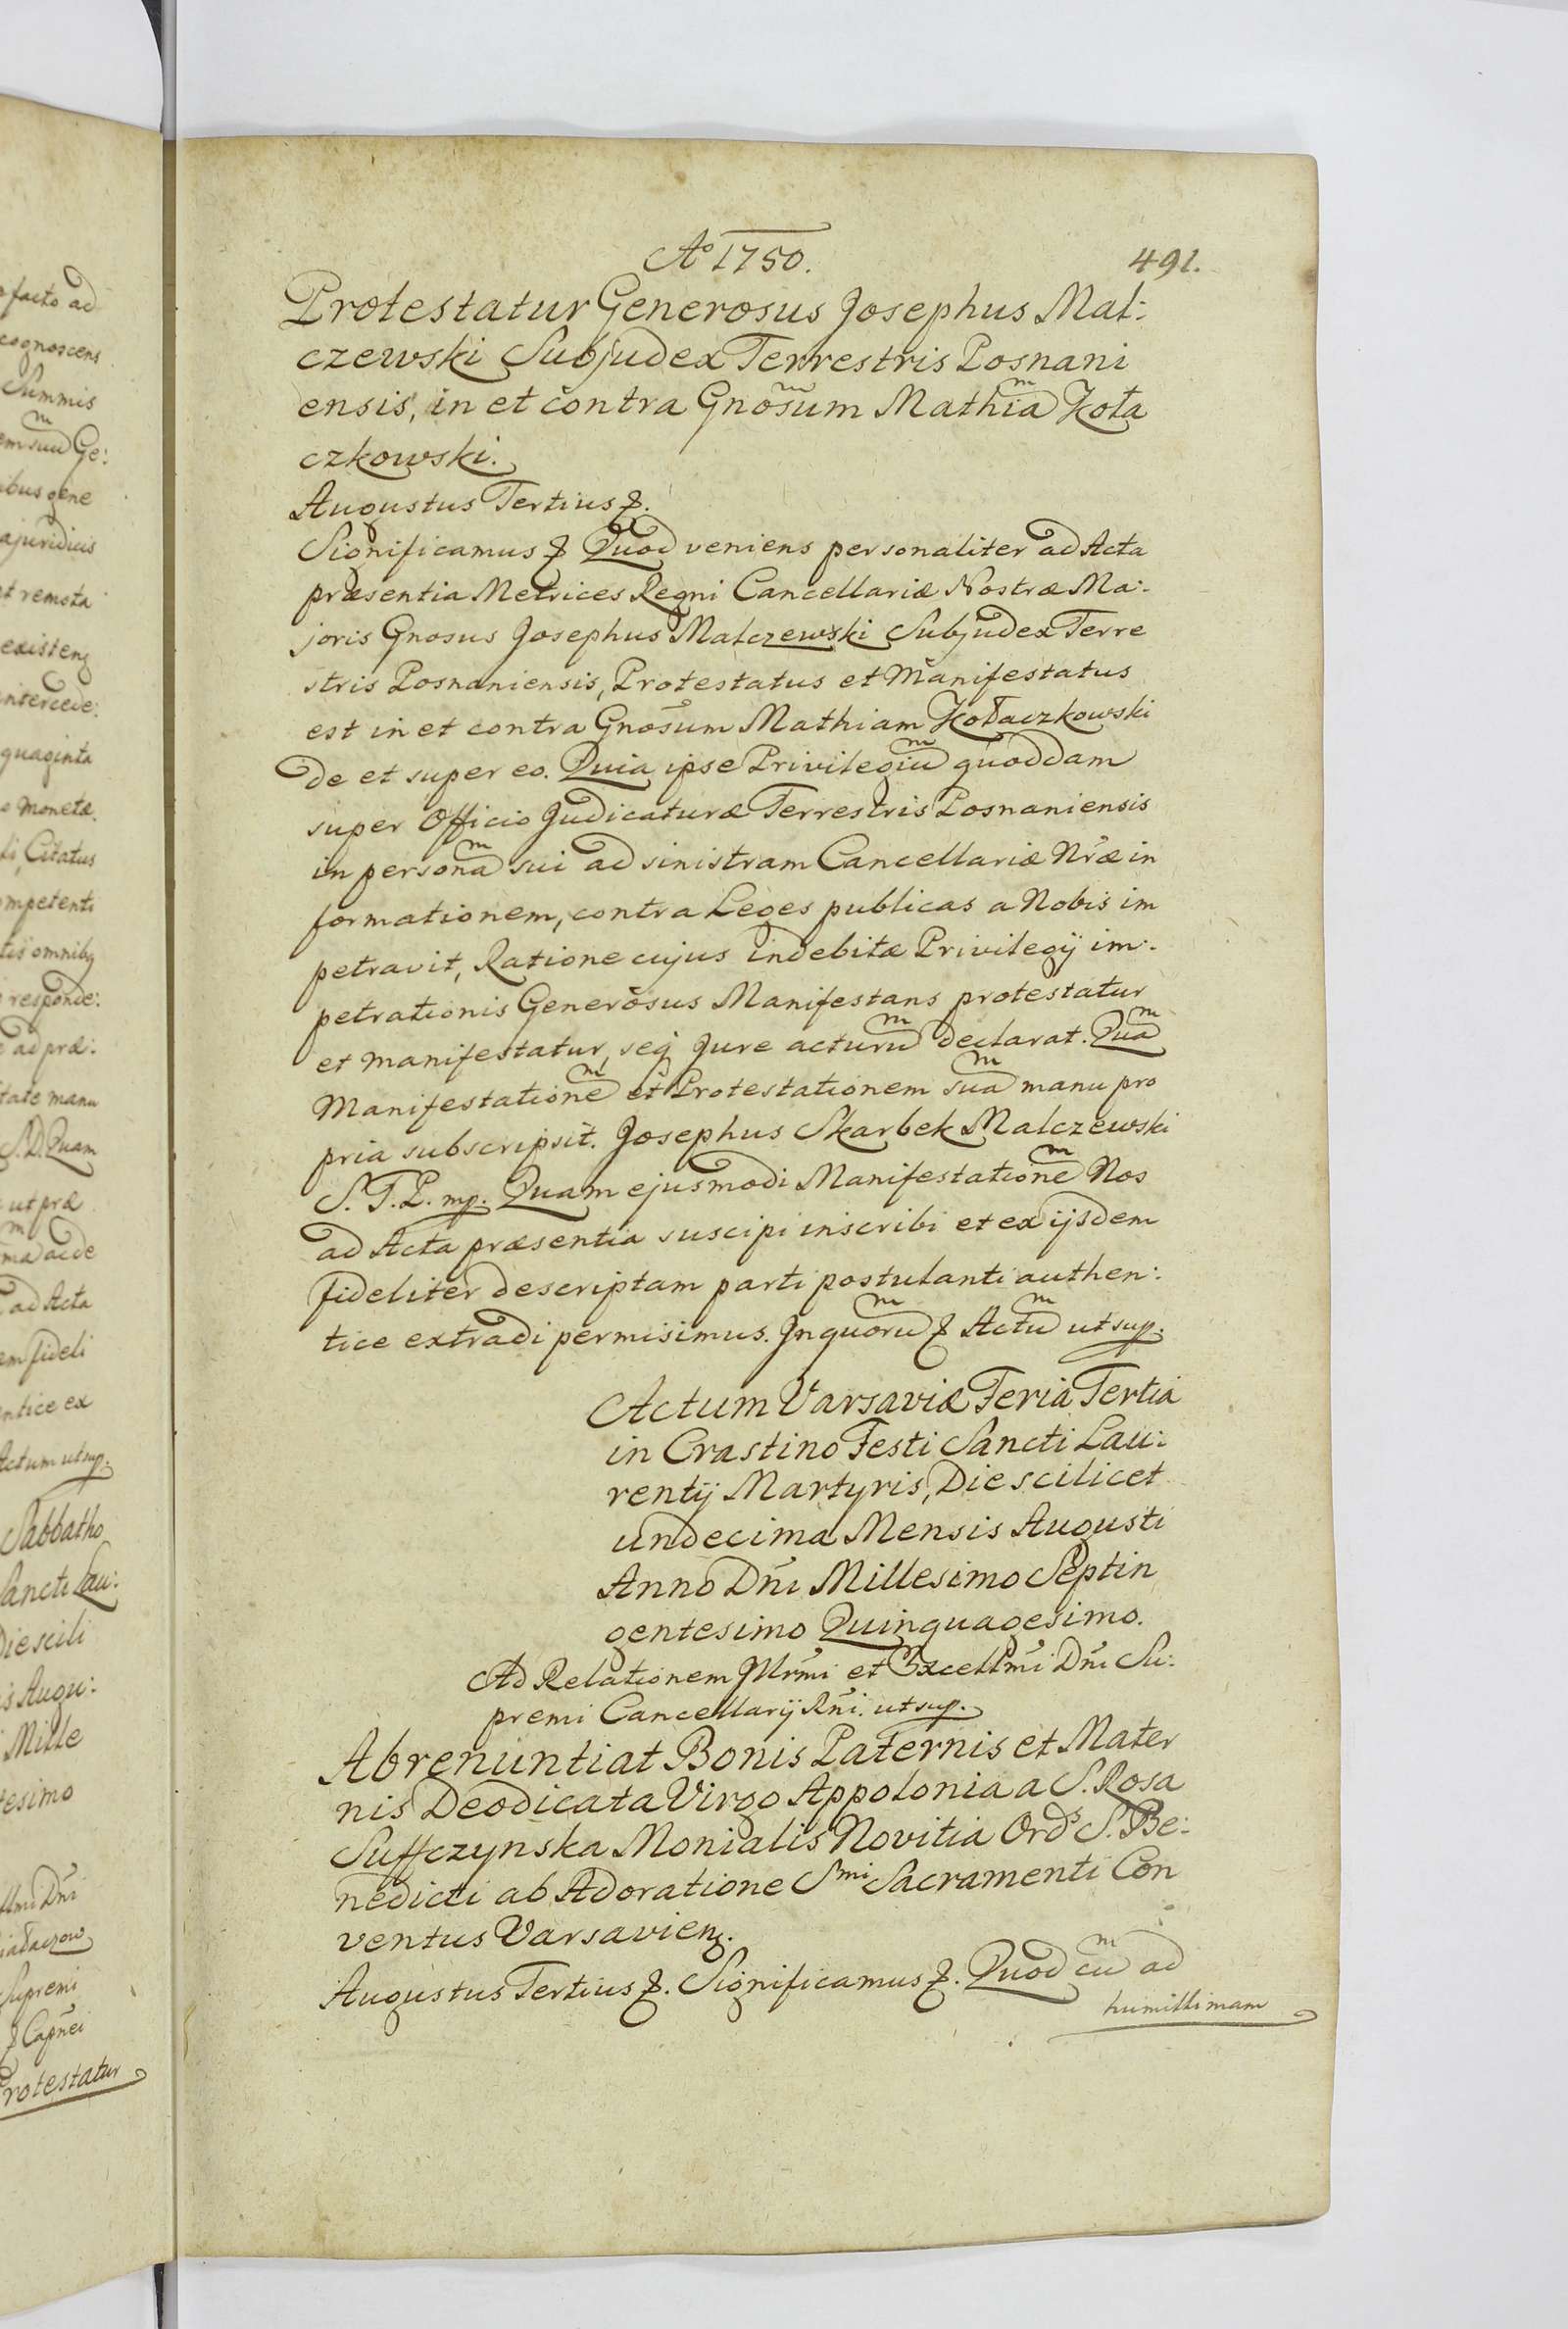 Aº 1750. 491.
Protestatur Generosus Josephus Mal:
czewski Subjudex Terrestris Posnani
ensis, in et contra Gnõsum Mathiam Koła
czkowski.
Augustus Tertius &.
Significamus & Quod veniens personaliter ad Acta
præsentia Metrices Regni Cancellariæ Nostræ Ma:
joris Gnosus Josephus Malczewski Subjudex Terre
stris Posnaniensis, Protestatus et Manifestatus
est in et contra Gnõsum Mathiam Kołaczkowski
de et super eo. Quia ipse Privilegium quoddam
super Officio Judicaturæ Terrestris Posnaniensis
in personam sui ad sinistram Cancellariæ Nræ in
formationem, contra Leges publicas a Nobis im
petravit, Ratione cujus indebitæ Privilegij im:
petrationis Generosus Manifestans protestatur
et manifestatur, seq̃ Jure acturum declarat. Quam
Manifestationem et Protestationem suam manu pro
pria subscripsit. Josephus Skarbek Malczewski
S. T. P. mp. Quam ejusmodi Manifestationem Nos
ad Acta præsentia suscipi inscribi et ex ijsdem
fideliter descriptam parti postulanti authen:
tice extradi permisimus. Inquorum & Actum ut sup.
Actum Varsaviæ Feria Tertia
in Crastino Festi Sancti Lau:
rentij Martyris, Die scilicet
undecima Mensis Augusti
Anno Dñi Millesimo Septin
gentesimo Quinquagesimo.
Ad Relationem Illrmi et Excellmi Dñi Su:
premi Cancellarij Rñi. ut sup.
Abrenuntiat Bonis Paternis et Mater
nis Deodicata Virgo Appolonia a S. Rosa
Suffczynska Monialis Novitia Ords S. Be:
nedicti ab Adoratione Smi Sacramenti Con
ventus Varsavien.
Augustus Tertius &. Significamus &. Quod cum ad
humillimam
facto ad
cognoscens
Summis
Ge:
gene
et remota
intercede:
quaginta
Monetæ.
Citatus
omnibq
responde:
ad præ:
manu
S. D. Quam
ut præ
ac de
ad Acta
fideli
ex
Actum ut sup.
Sabbatho
Sancti Lau:
Die scili
Augu:
Mille
Dñi
Supremi
& Capñei
Protestatur